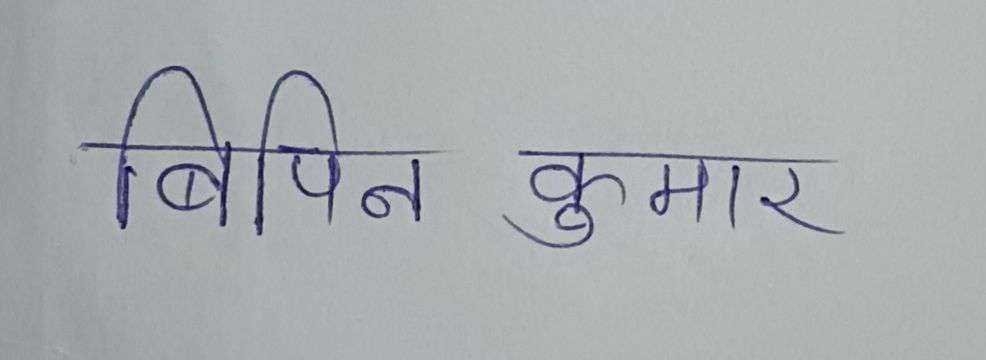 बिपिन कुमार